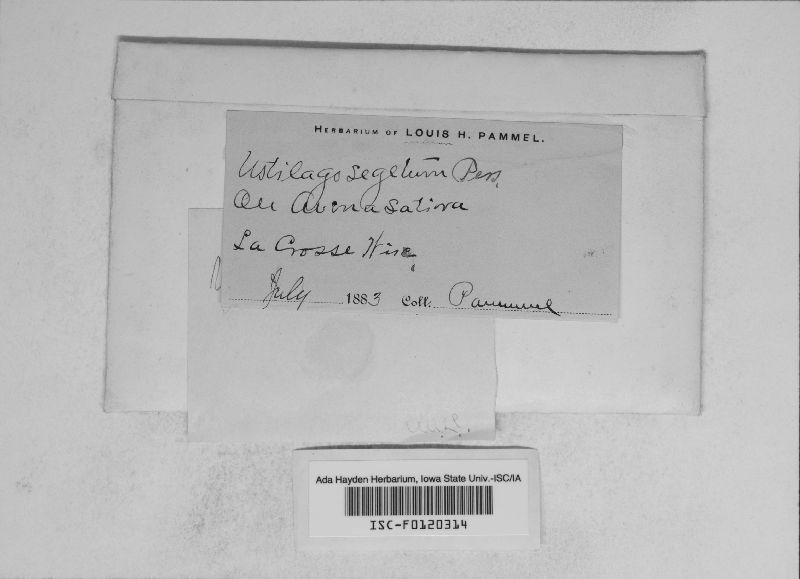 HERBARIUM OF LOUIS H. PAMMEL.
Ustilago segetum Pers.
On Avena sativa
La Crosse Wisc.
July 1883 Coll. Pammel
Ada Hayden Herbarium, Iowa State Univ.-ISC/IA
ISC-F0120314